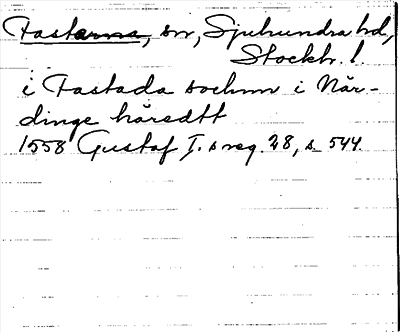 Fasterna, sn, Sjuhundra hd,
Stockh. l.
i Fastada sochnn i Når-
dinge häredtt
1558 Gustaf I.s reg. 28, s. 544